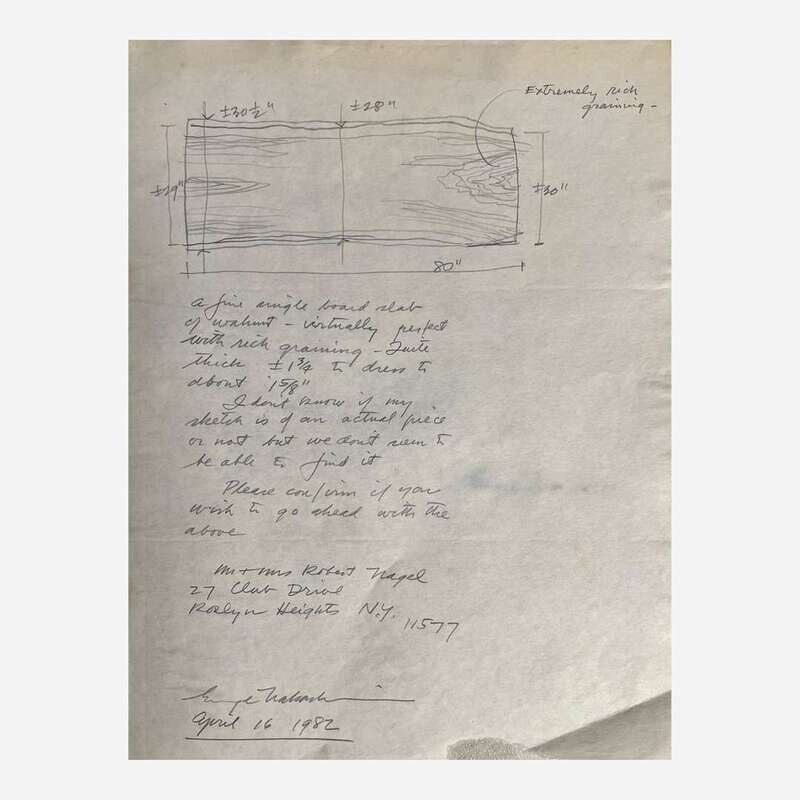 ±30½"
±28"
Extremely rich
graining -
±29"
±30"
80"
a fine single board slab
of walnut - virtually perfect
with rich graining - Quite
thick ±1¾ to dress to
about 1⅝"
I don't know if my
sketch is of an actual piece
or not but we don't seem to
be able to find it
Please confirm if you
wish to go ahead with the
above
Mr + Mrs Robert Nagel
27 Club Drive
Roslyn Heights N.Y.
11577
George Nakashima
April 16 1982